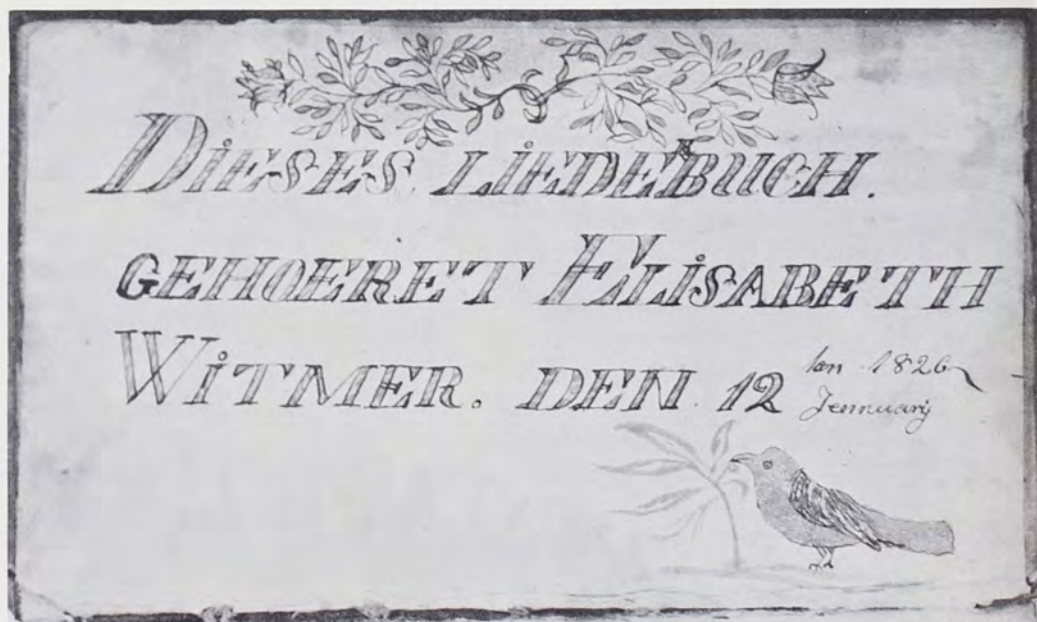 DiESES LiEDERBUCH.
GEHOERET ELiSABETH
WiTMER. DEN. 12 ten 1826
Jennuarÿ